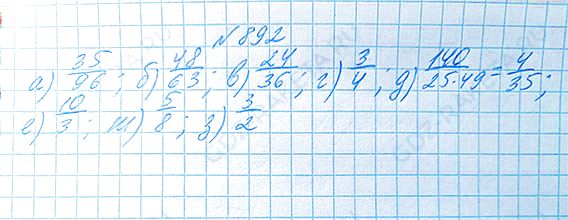 №892
а) 35/96; б) 48/63; в) 24/36; г) 3/4; д) 140/25·49 = 4/35;
е) 10/3; ж) 5/8; з) 3/2